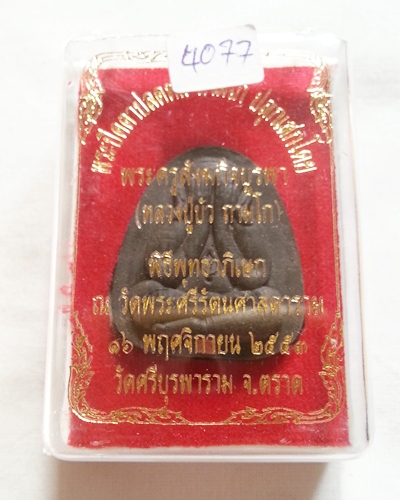 4077
พระปิดตาปลดหนี้ ปลุกเสกโดย
พระครูสังฆกิจบูรพา
(หลวงปู่บัว ถามโก)
พิธีพุทธาภิเษก
ณ วัดพระศรีรัตนศาสดาราม
๑๖ พฤศจิกายน ๒๕๕๓
วัดศรีบูรพาราม จ.ตราด